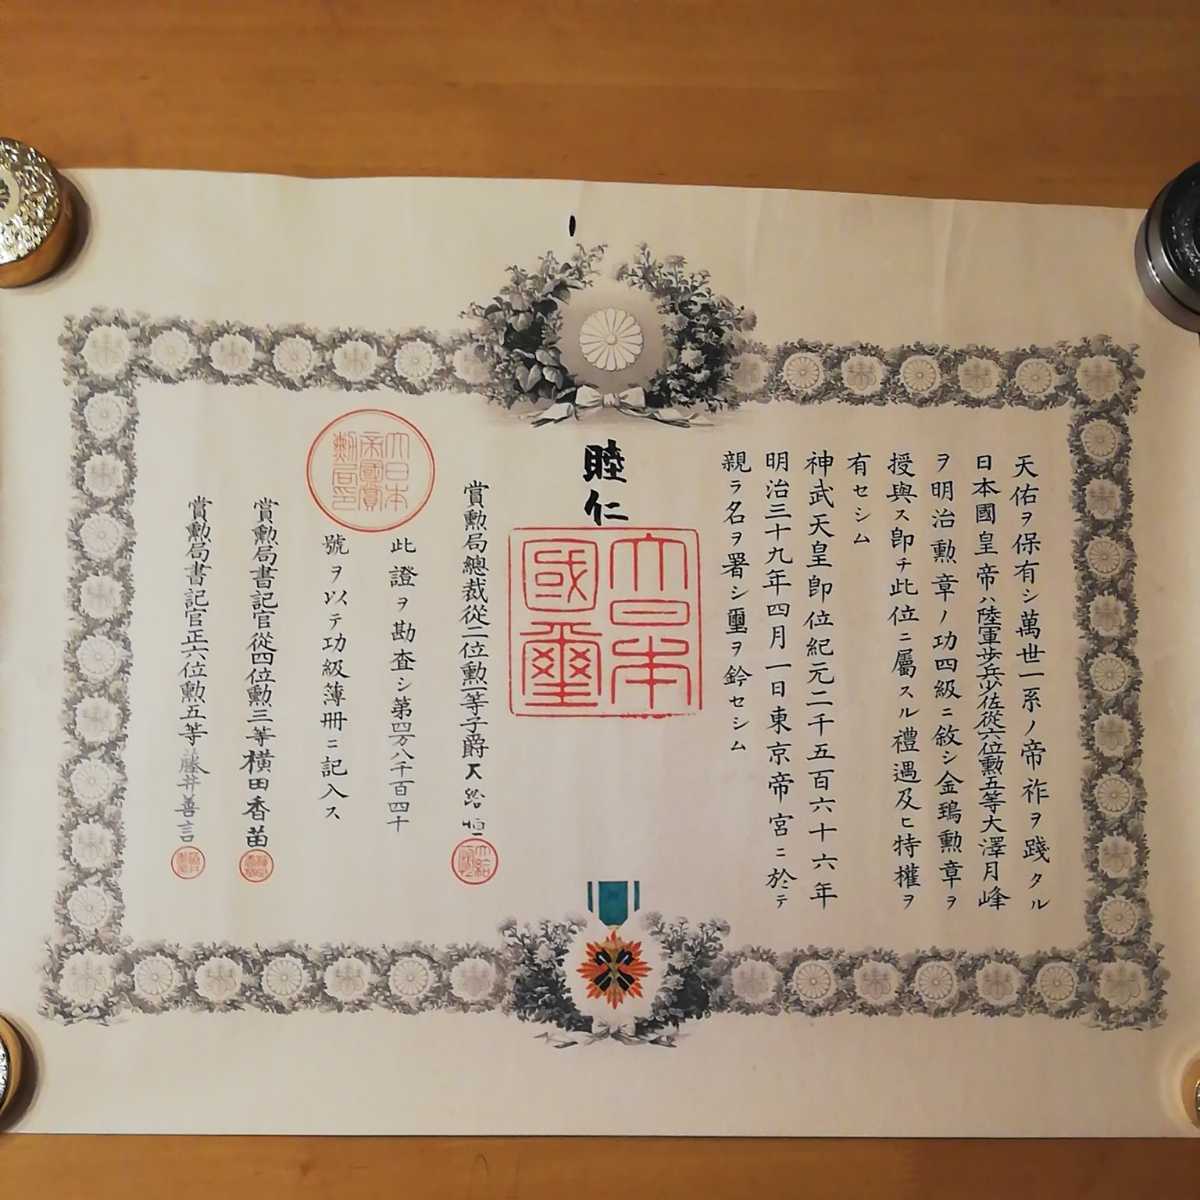 天佑ヲ保有シ萬世一系ノ帝祚ヲ踐タル
日本國皇帝ハ陸軍歩兵少佐從六位勲五等大澤月峰
ヲ明治勲章ノ功四級ニ敘シ金鵄勲章ヲ
授與ス卽チ此位ニ屬スル禮遇及ヒ特權ヲ
有セシム
神武天皇卽位紀元二千五百六十六年
明治三十九年四月一日東京帝宮ニ於テ
親ラ名ヲ署シ璽ヲ鈐セシム
睦仁
大日本國璽
賞勲局總裁從二位勲一等子爵大給恒
此證ヲ勘査シ第四万八千百四十
號ヲ以テ功級簿冊ニ記入ス
大日本帝國賞勲局印
賞勲局書記官從四位勲三等橫田香苗
賞勲局書記官正六位勲五等藤井善言